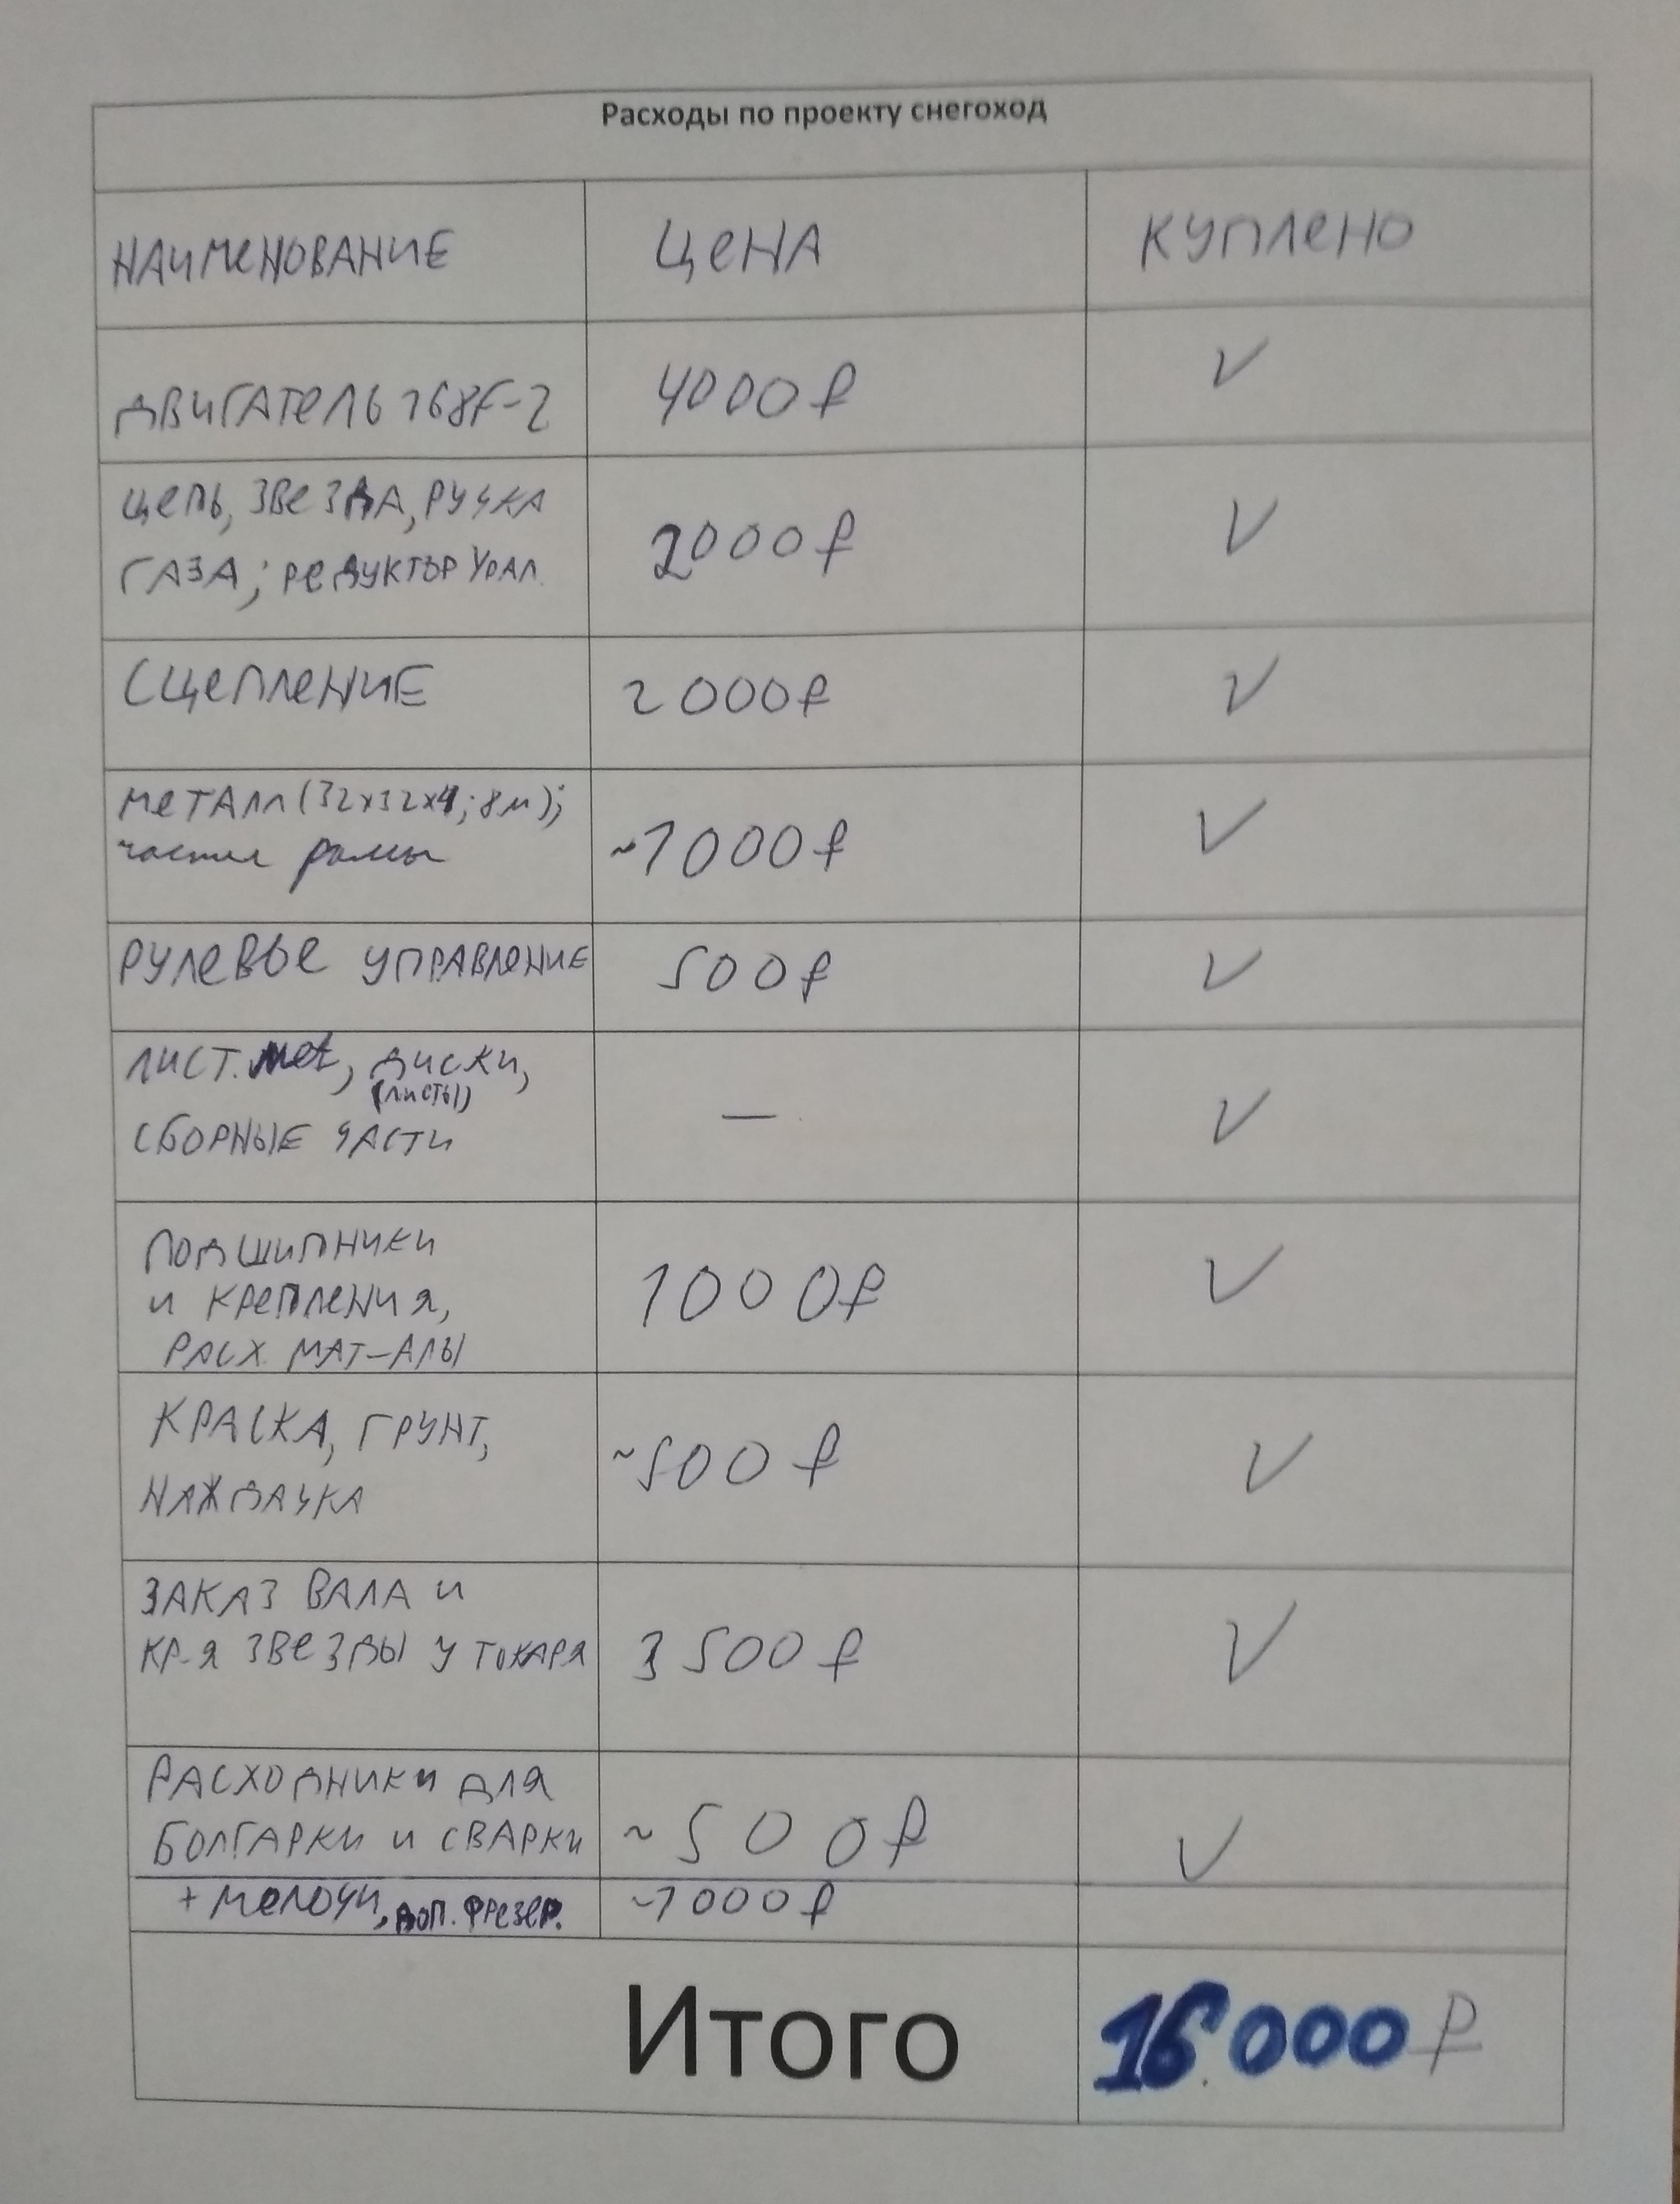 Расходы по проекту снегоход
НАИМЕНОВАНИЕ ЦЕНА КУПЛЕНО
ДВИГАТЕЛЬ 168F-2 4000₽ ✓
ЦЕПЬ, ЗВЕЗДА, РУЧКА
ГАЗА; РЕДУКТОР УРАЛ. 2000₽ ✓
СЦЕПЛЕНИЕ 2000₽ ✓
МЕТАЛЛ (32х32х4; 8м);
части рамы ~1000₽ ✓
РУЛЕВОЕ УПРАВЛЕНИЕ 500₽ ✓
ЛИСТ. мет, ДИСКИ,
(ЛИСТЫ)
СБОРНЫЕ ЧАСТИ — ✓
ПОДШИПНИКИ
И КРЕПЛЕНИЯ, 1000₽ ✓
РАСХ. МАТ-АЛЫ
КРАСКА, ГРУНТ,
НАЖДАЧКА ~500₽ ✓
ЗАКАЗ ВАЛА И
КР-Я ЗВЕЗДЫ У ТОКАРЯ 3500₽ ✓
РАСХОДНИКИ ДЛЯ
БОЛГАРКИ И СВАРКИ ~500₽ ✓
+ МЕЛОЧИ, ДОП. ФРЕЗЕР. ~1000₽
Итого 16.000₽